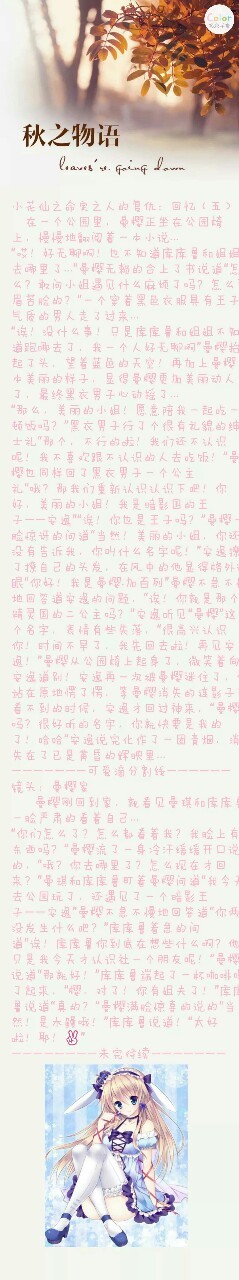 Color
秋之物语
leaves're going down
小花仙之命定之人的复仇：回忆（五）
在一个公园里，曼樱正坐在公园椅
上，慢慢地翻阅着一本小说…
“哎！好无聊啊！也不知道库库曼和姐姐
去哪里了…”曼樱无聊的合上了书说道“怎
么？敢问小姐遇见什么麻烦了吗？怎么一
脸苦脸的？”一个穿着黑色衣服具有王子
气质的男人走了过来…
“诶！没什么事！只是库库曼和姐姐不知
道跑哪去了，我一个人好无聊啊”曼樱抬
起了头，望着蓝色的天空！再加上曼樱
中美丽的样子，显得曼樱更加美丽动人
了，最终黑衣男子心动摇了…
“那么，美丽的小姐！愿意陪我一起吃一
顿饭吗？”黑衣男子行了个很有礼貌的绅
士礼“那个，不行的啦！我们还不认识
呢！我不喜欢跟不认识的人去吃饭！”曼
樱也同样回了黑衣男子一个公主
礼“哦？那我们重新认识认识下吧！你
好，美丽的小姐！我是暗影国的王
子——安逸”“诶！你也是王子吗？”曼樱一
脸惊讶的问道“当然！美丽的小姐，你还
没有告诉我，你叫什么名字呢！”安逸撩
了撩自己的头发，在风中的他显得格外耀
眼“你好！我是曼樱·加百列”曼樱不急不慢
地回答道安逸的问题，“诶！你就是那个
精灵国的二公主吗？”安逸听见“曼樱”这
个名字，表情有些失落，“很高兴认识
你！时间不早了，我先回去啦！再见安
逸！”曼樱从公园椅上起身了，微笑着向
安逸道别！安逸再一次被曼樱迷住了，一直
站在原地愣了愣，等曼樱消失的连影子都
看不到的时候，安逸才回过神来，“曼樱
吗？很好听的名字，你就快要是我的
了！哈哈”安逸说完化作了一团青烟，消
失在了已是黄昏的辉眼里…
———————可爱滴分割线———————
镜头：曼樱家
曼樱刚回到家，就看见曼琪和库库曼
一脸严肃的看着自己…
“你们怎么了？怎么都看着我？我脸上有
东西吗？”曼樱流了一身冷汗缓缓开口说
的，“哦？你去哪里了？怎么现在才回
来？”曼琪和库库曼盯着曼樱问道“我今天
去公园玩了，还遇见了一个暗影王
子——安逸”曼樱不急不慢地回答道“你两
没发生什么吧？”库库曼着急的问
道“诶！库库曼你到底在想些什么啊？他
只是我今天才认识社一个朋友呢！”曼樱
说道“那就好！”库库曼端起了一杯咖啡喝
了起来，“樱，对了！你有姐夫了！”库库
曼说道“真的？”曼樱满脸惊喜的说的“当
然！是水嫚哦！”库库曼说道！“太好
啦！耶！✌”
————————未完待续————————